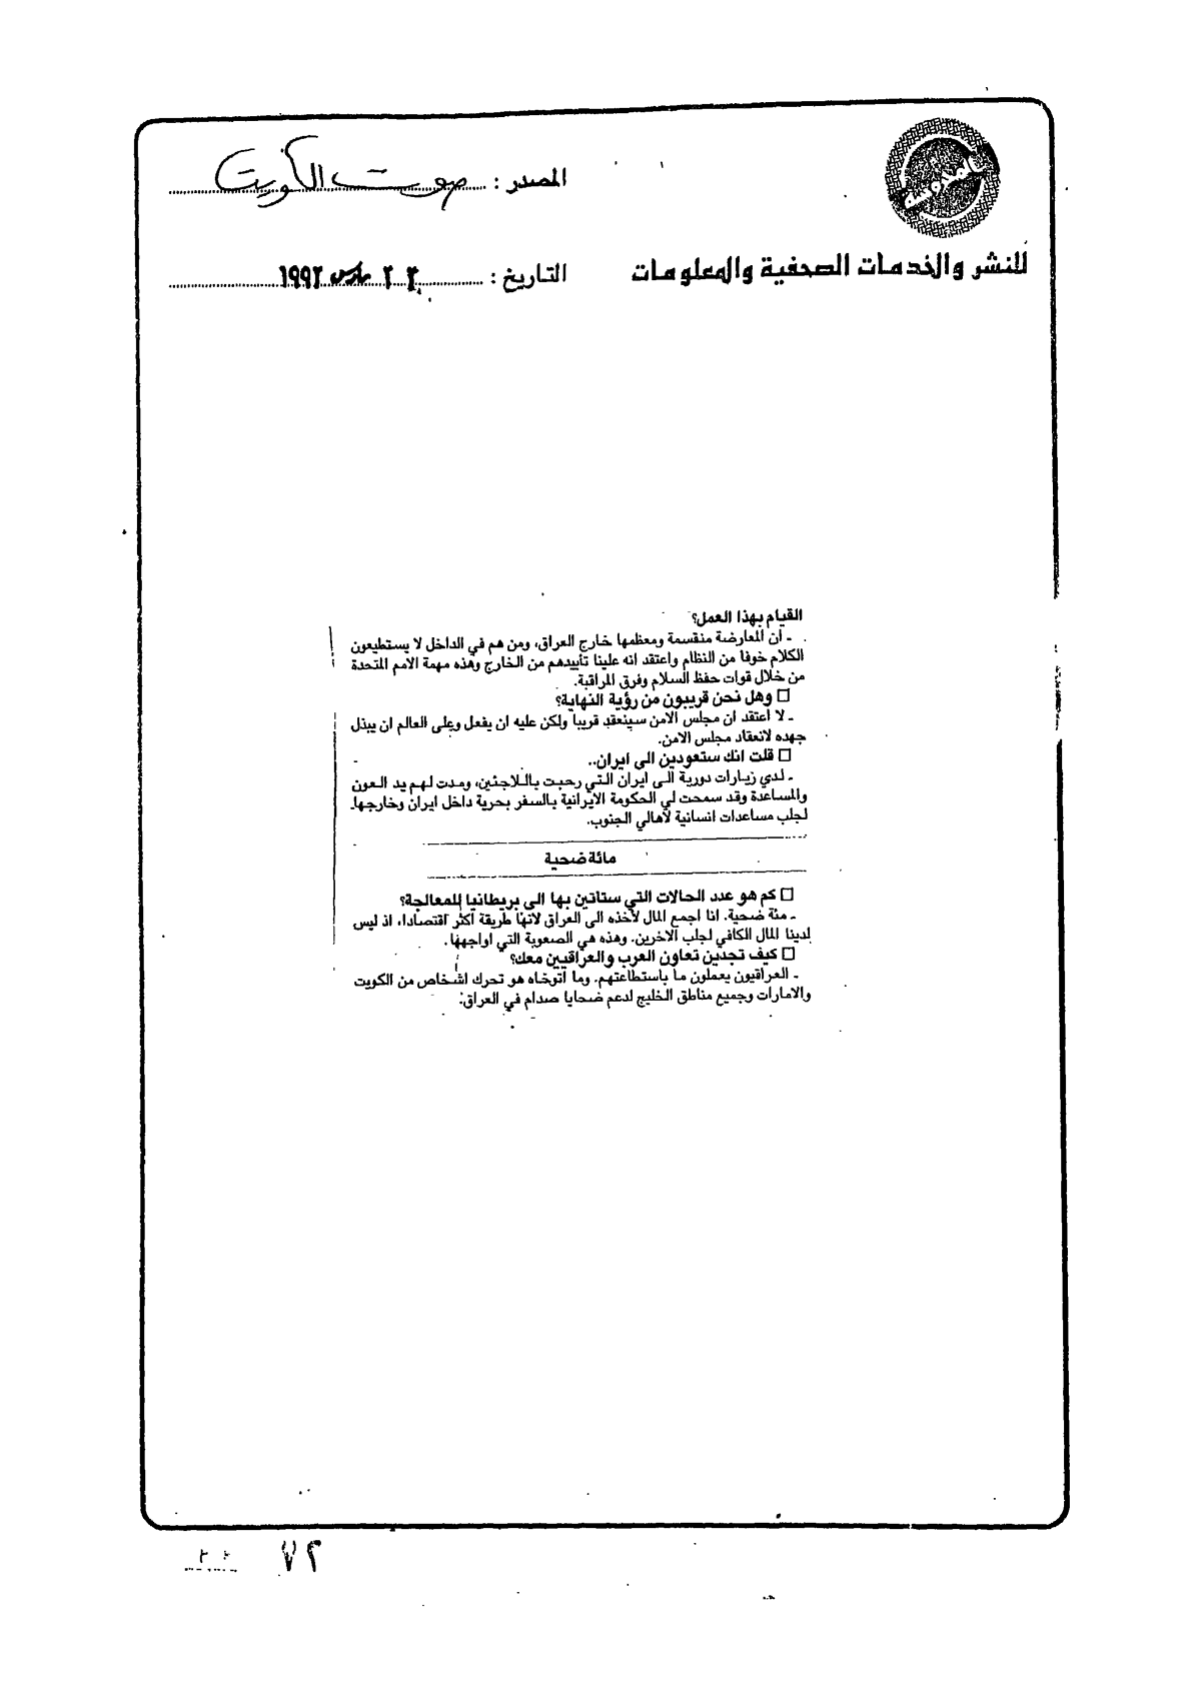 المصدر : صوت الكويت
للنشر والخدمات الصحفية والمعلومات
التاريخ : ٢٢ مارس ١٩٩٢
القيام بهذا العمل؟
ـ أن المعارضة منقسمة ومعظمها خارج العراق، ومن هم في الداخل لا يستطيعون
الكلام خوفا من النظام واعتقد انه علينا تأييدهم من الخارج وهذه مهمة الامم المتحدة
من خلال قوات حفظ السلام وفرق المراقبة.
□ وهل نحن قريبون من رؤية النهاية؟
ـ لا اعتقد ان مجلس الامن سينعقد قريبا ولكن عليه ان يفعل وعلى العالم ان يبذل
جهده لانعقاد مجلس الامن.
□ قلت انك ستعودين الى ايران..
ـ لدي زيارات دورية الى ايران التي رحبت باللاجئين، ومدت لهم يد العون
والمساعدة وقد سمحت لي الحكومة الايرانية بالسفر بحرية داخل ايران وخارجها
لجلب مساعدات انسانية لأهالي الجنوب.
مائة ضحية
□ كم هو عدد الحالات التي ستأتين بها الى بريطانيا للمعالجة؟
ـ مئة ضحية. انا اجمع المال لأخذه الى العراق لانها طريقة اكثر اقتصادا، اذ ليس
لدينا المال الكافي لجلب الاخرين. وهذه هي الصعوبة التي اواجهها.
□ كيف تجدين تعاون العرب والعراقيين معك؟
ـ العراقيون يعملون ما باستطاعتهم. وما اتوخاه هو تحرك اشخاص من الكويت
والامارات وجميع مناطق الخليج لدعم ضحايا صدام في العراق.
٧٢